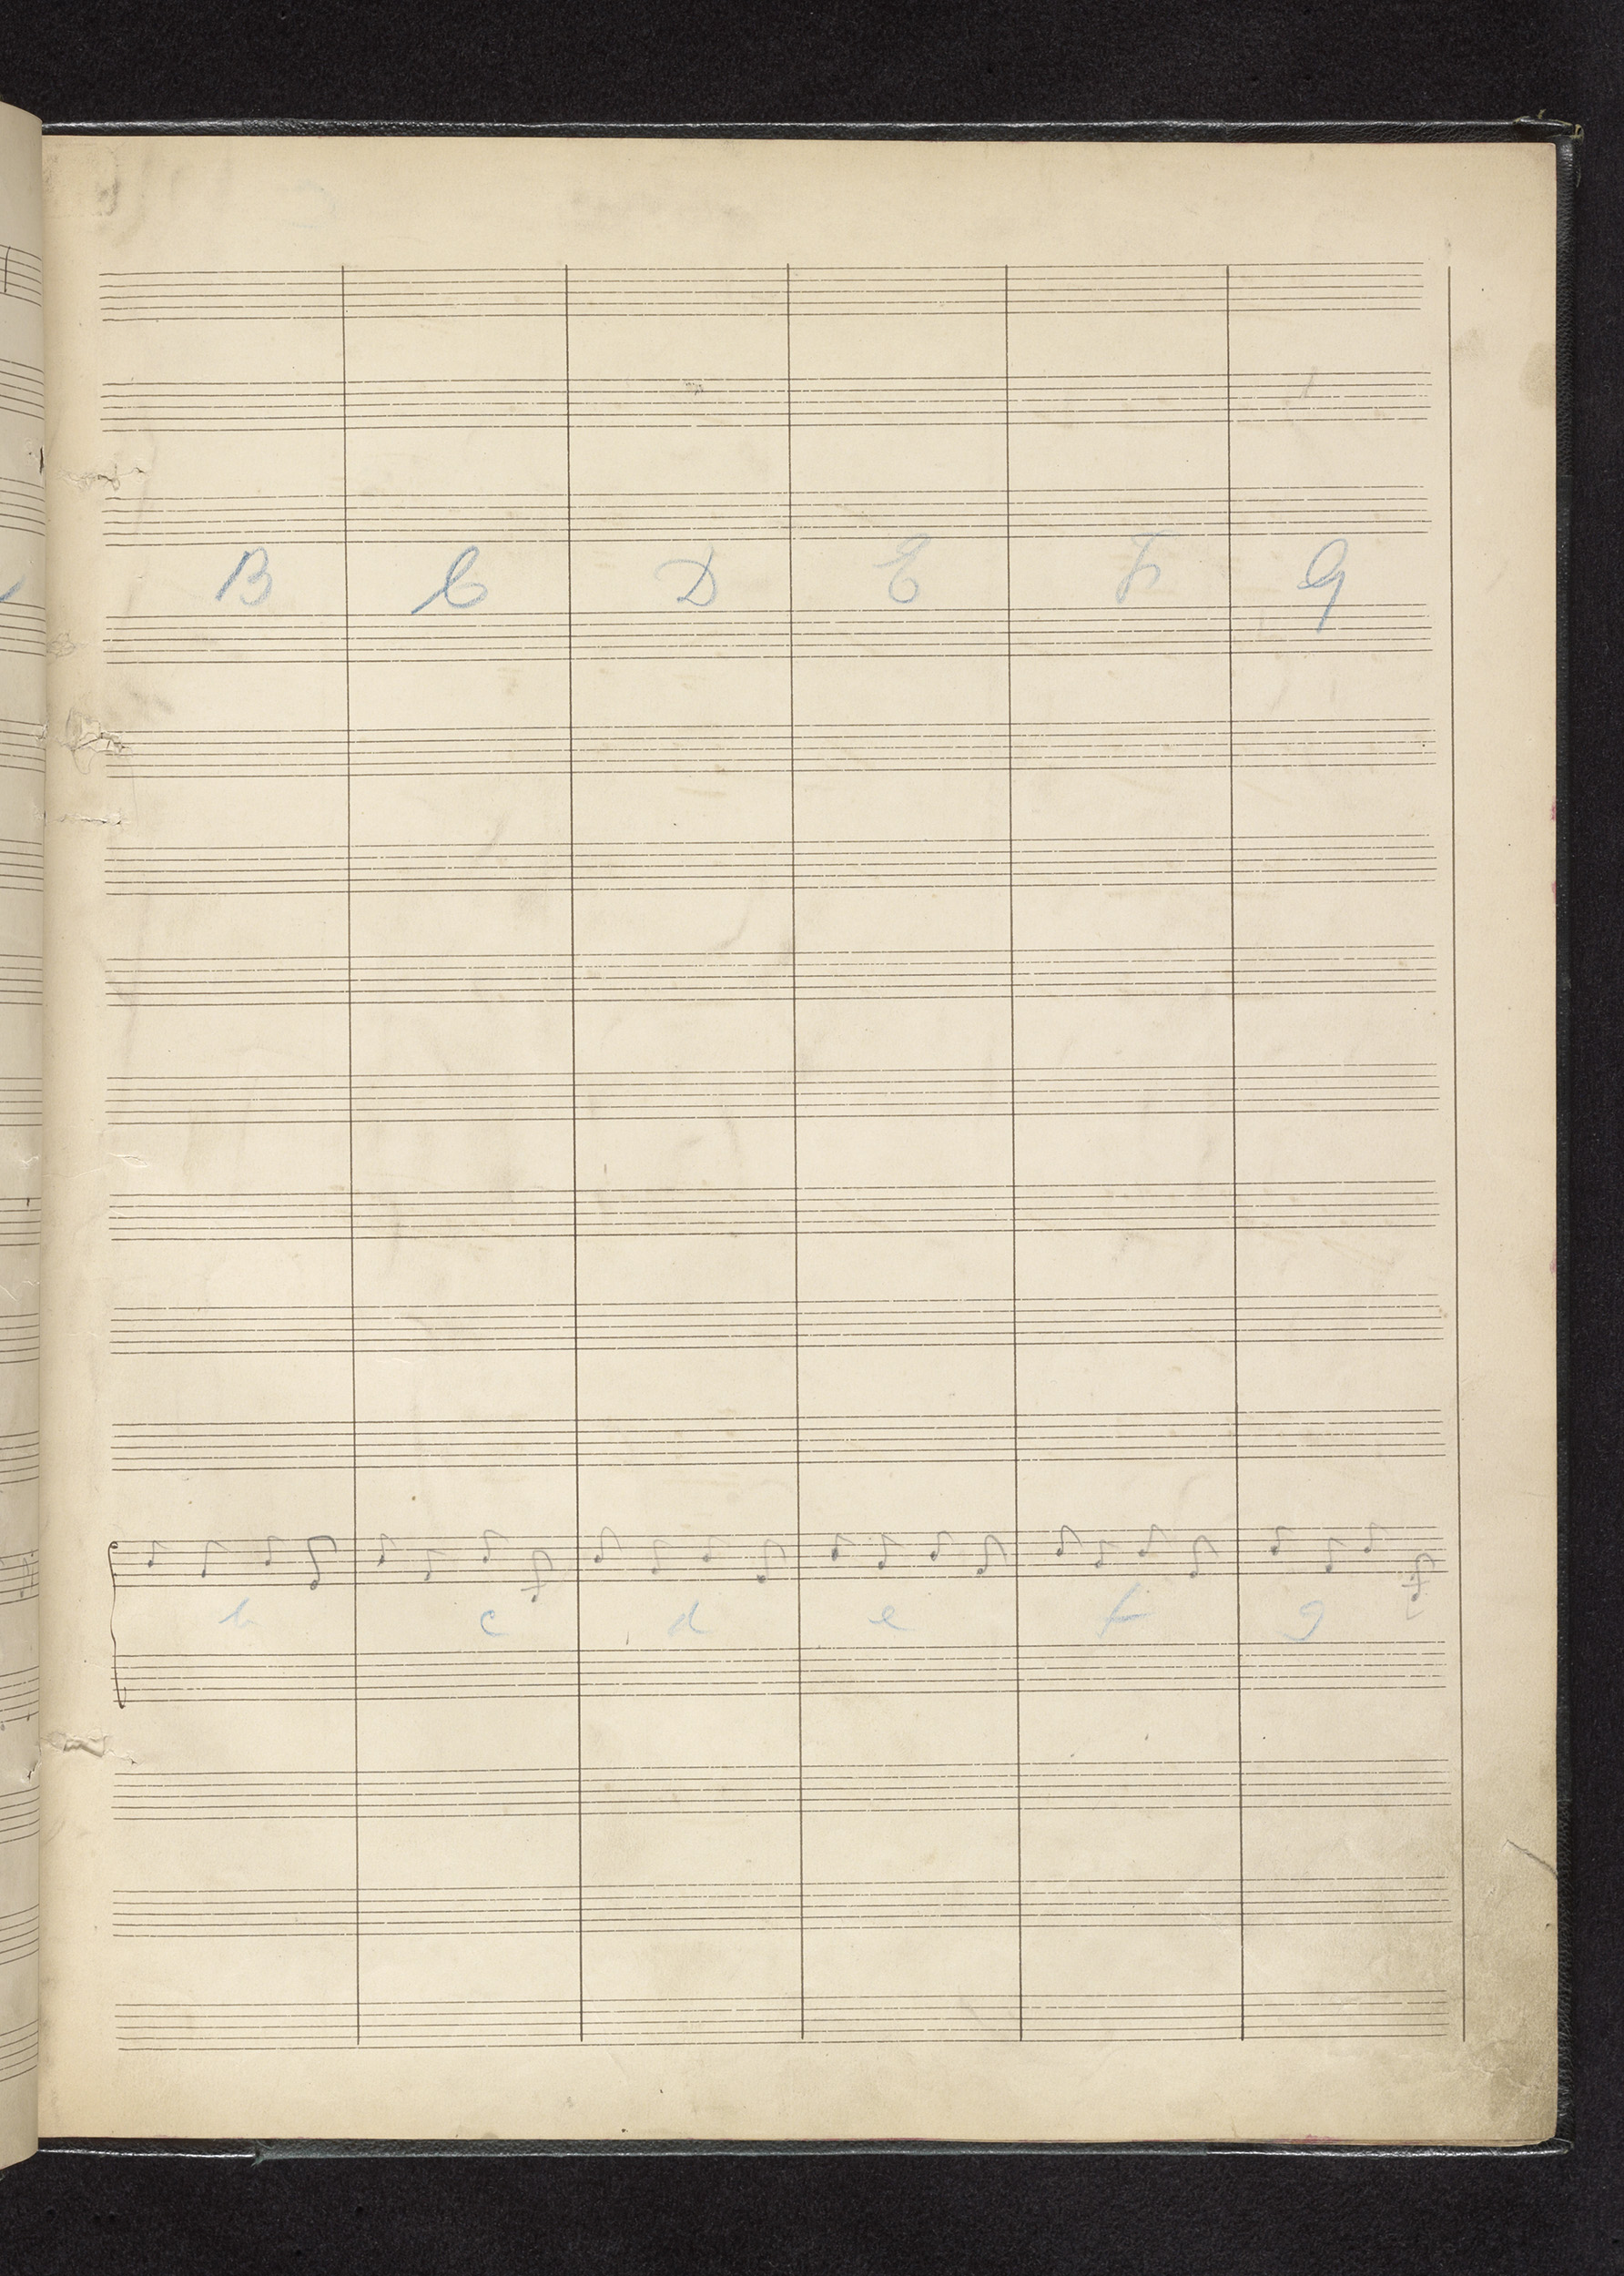 B C D E F G
b c d e f g